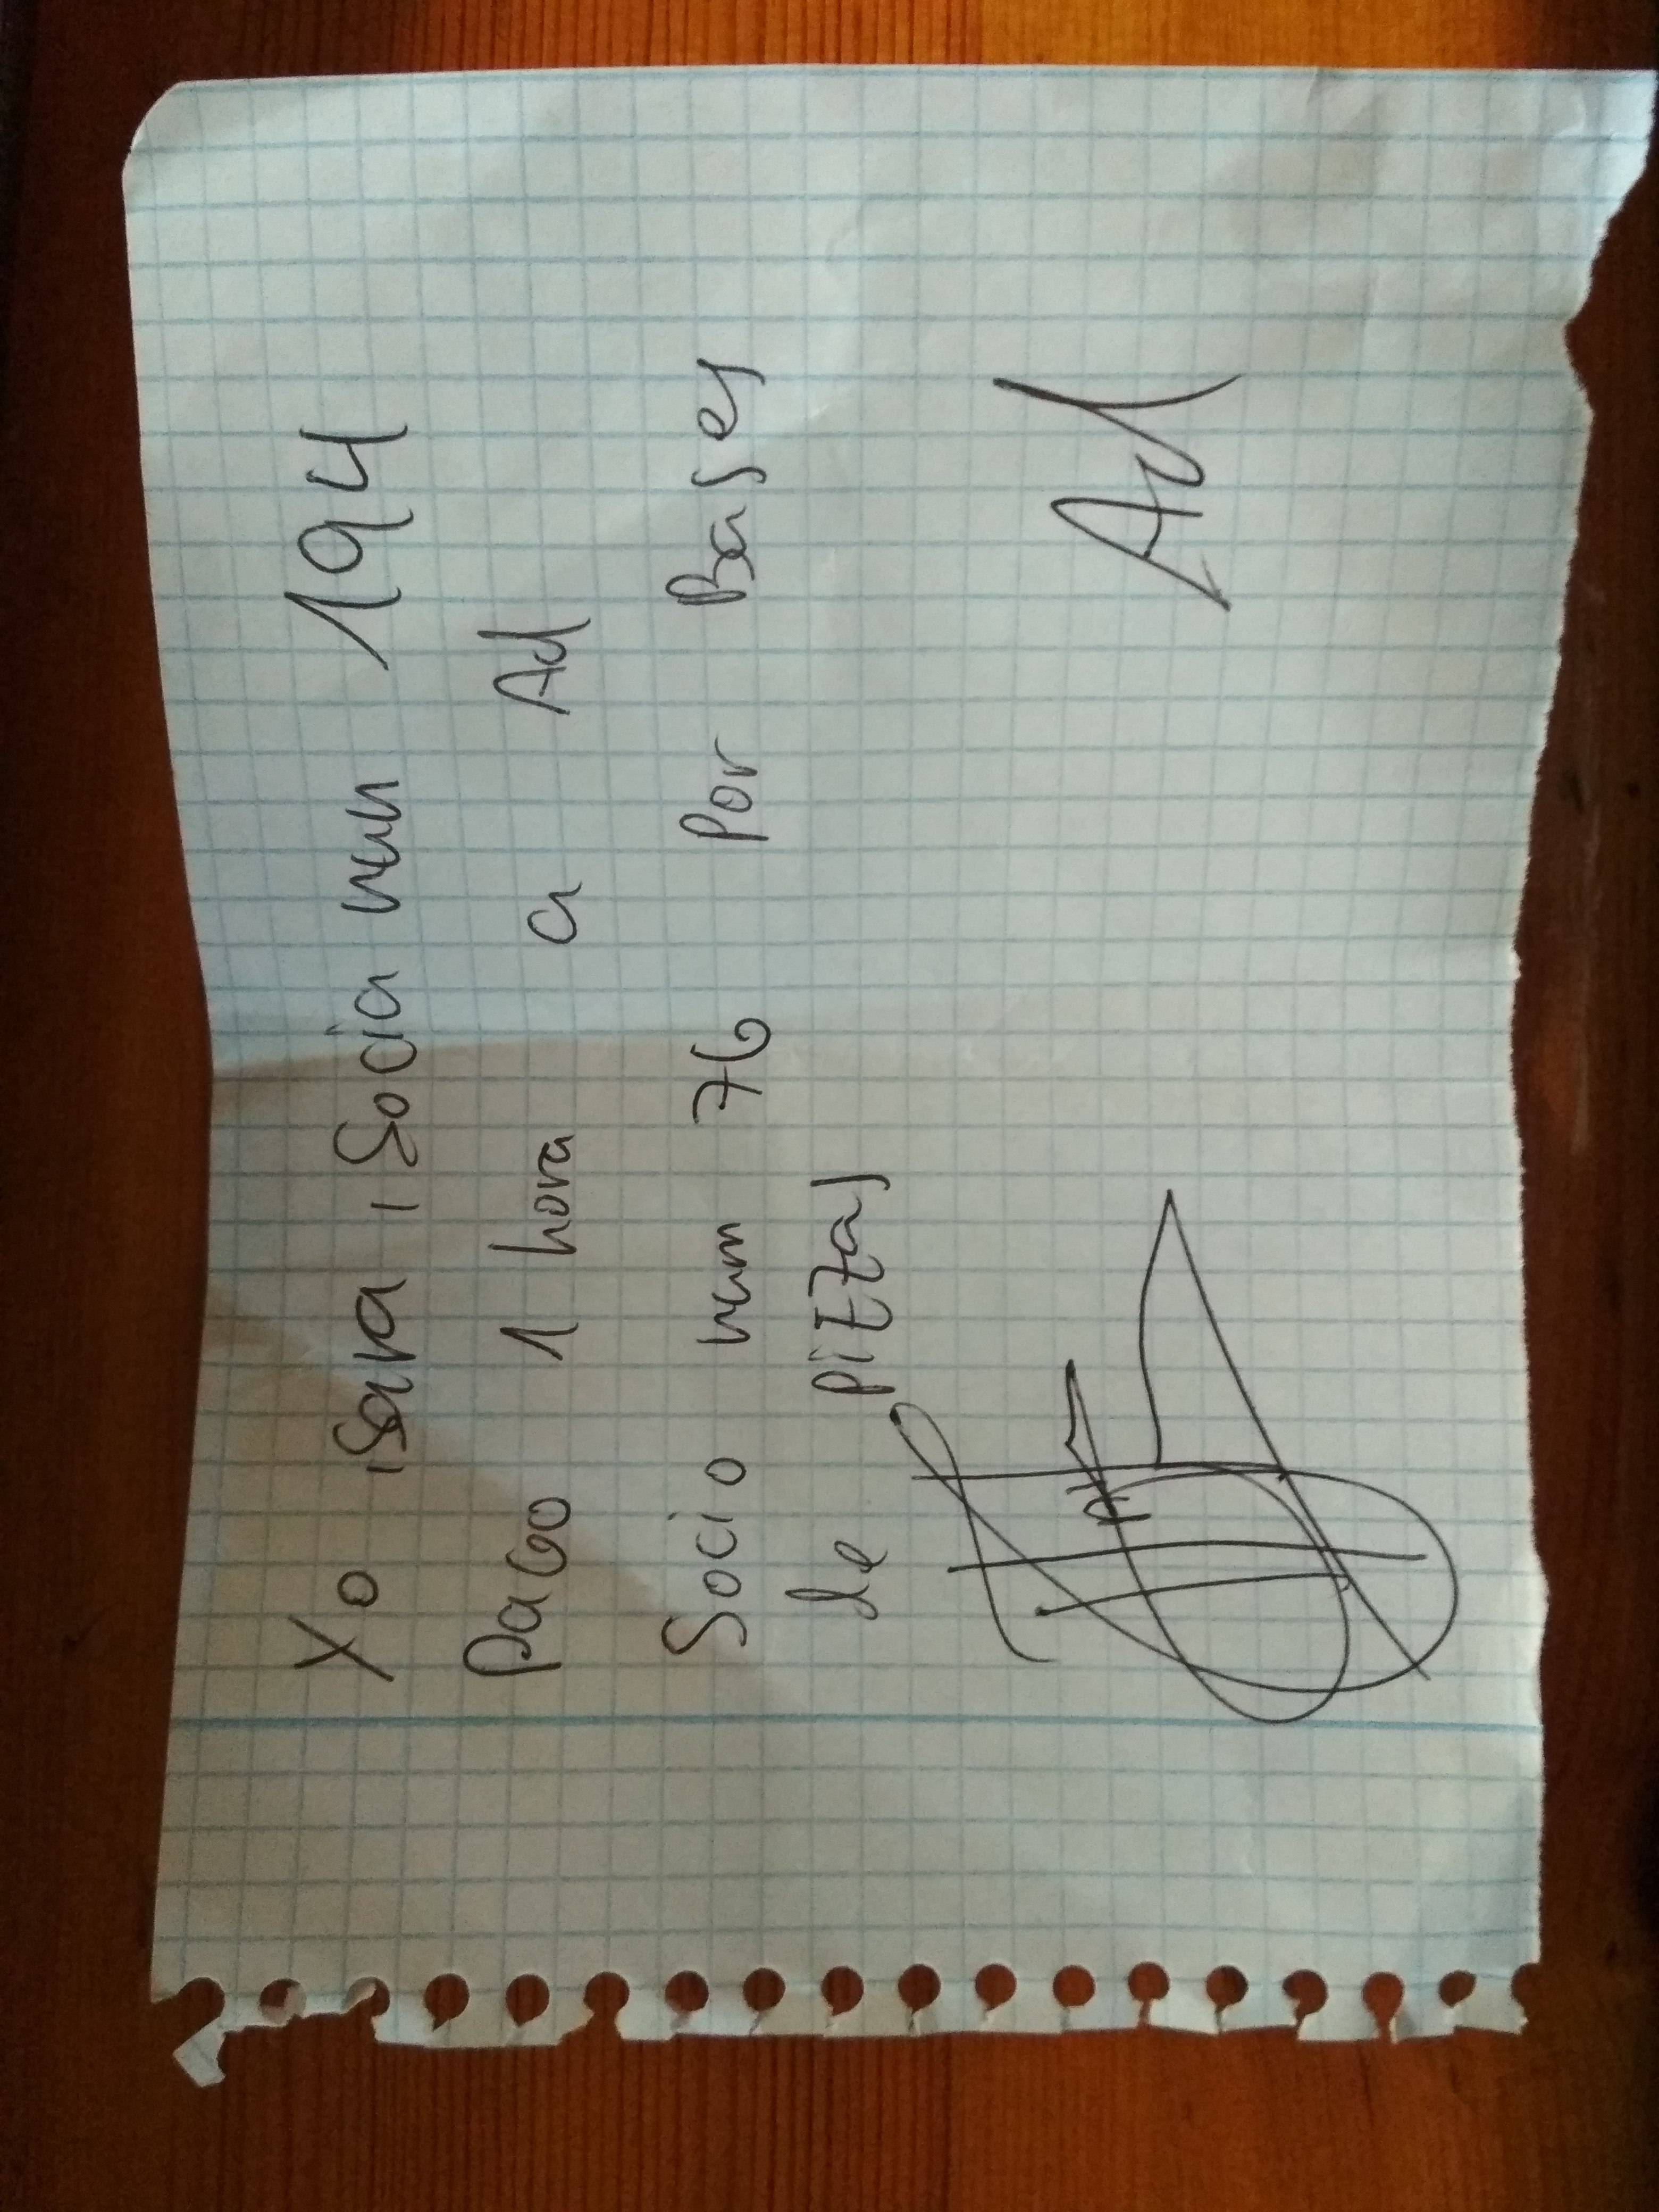 Yo, Sara, Socia num 194
Pago 1 hora a Ad
Socio num 76 por Bases
de pizzas
Ad